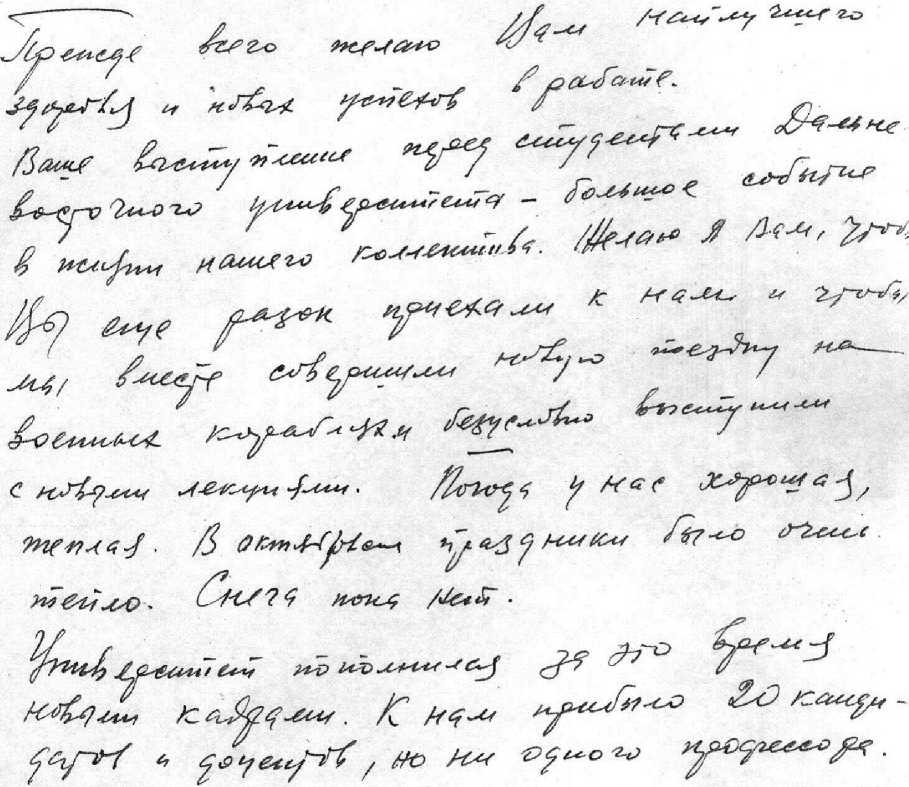 Прежде всего желаю Вам наилучшего
здоровья и новых успехов в работе.
Ваше выступление перед студентами Дальне-
восточного университета – большое событие
в жизни нашего коллектива. Желаю я Вам, чтобы
Вы еще разок приехали к нам и чтобы
мы вместе совершили новую поездку на
военных кораблях и безусловно выступили
с новыми лекциями. Погода у нас хорошая,
теплая. В октябрьские праздники было очень
тепло. Снега пока нет.
Университет пополнился за это время
новыми кадрами. К нам прибыло 20 канди-
датов и доцентов, но ни одного профессора.